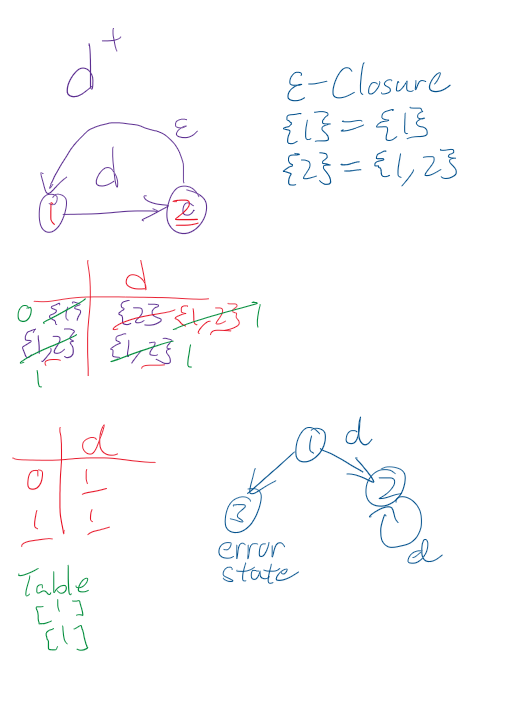 d+
ε-Closure
{1} = {1}
{2} = {1,2}
ε
d
1
2
d
0 {1} {2} {1,2} 1
{1,2} {1,2} 1
1
d
0 1
1 1
Table
[1]
[1]
1 d
3 2
error
state
d